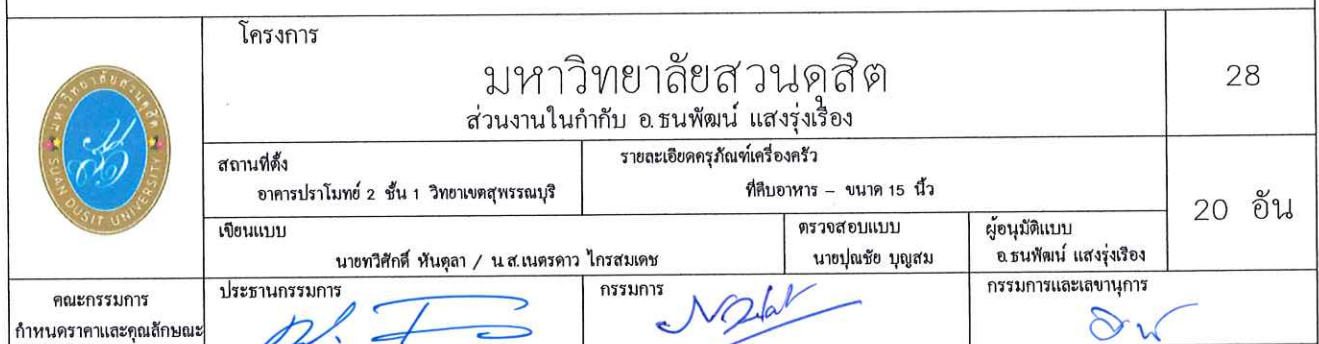 โครงการ
มหาวิทยาลัยสวนดุสิต
ส่วนงานในกำกับ อ.ธนพัฒน์ แสงรุ่งเรือง
28
มหาวิทยาลัยสวนดุสิต
SUAN DUSIT UNIVERSITY
สถานที่ตั้ง
อาคารปราโมทย์ 2 ชั้น 1 วิทยาเขตสุพรรณบุรี
รายละเอียดครุภัณฑ์เครื่องครัว
ที่คีบอาหาร – ขนาด 15 นิ้ว
20 อัน
เขียนแบบ
นายทวีศักดิ์ หันตุลา / น.ส.เนตรดาว ไกรสมเดช
ตรวจสอบแบบ
นายปุณชัย บุญสม
ผู้อนุมัติแบบ
อ.ธนพัฒน์ แสงรุ่งเรือง
คณะกรรมการ
กำหนดราคาและคุณลักษณะ
ประธานกรรมการ
กรรมการ
กรรมการและเลขานุการ